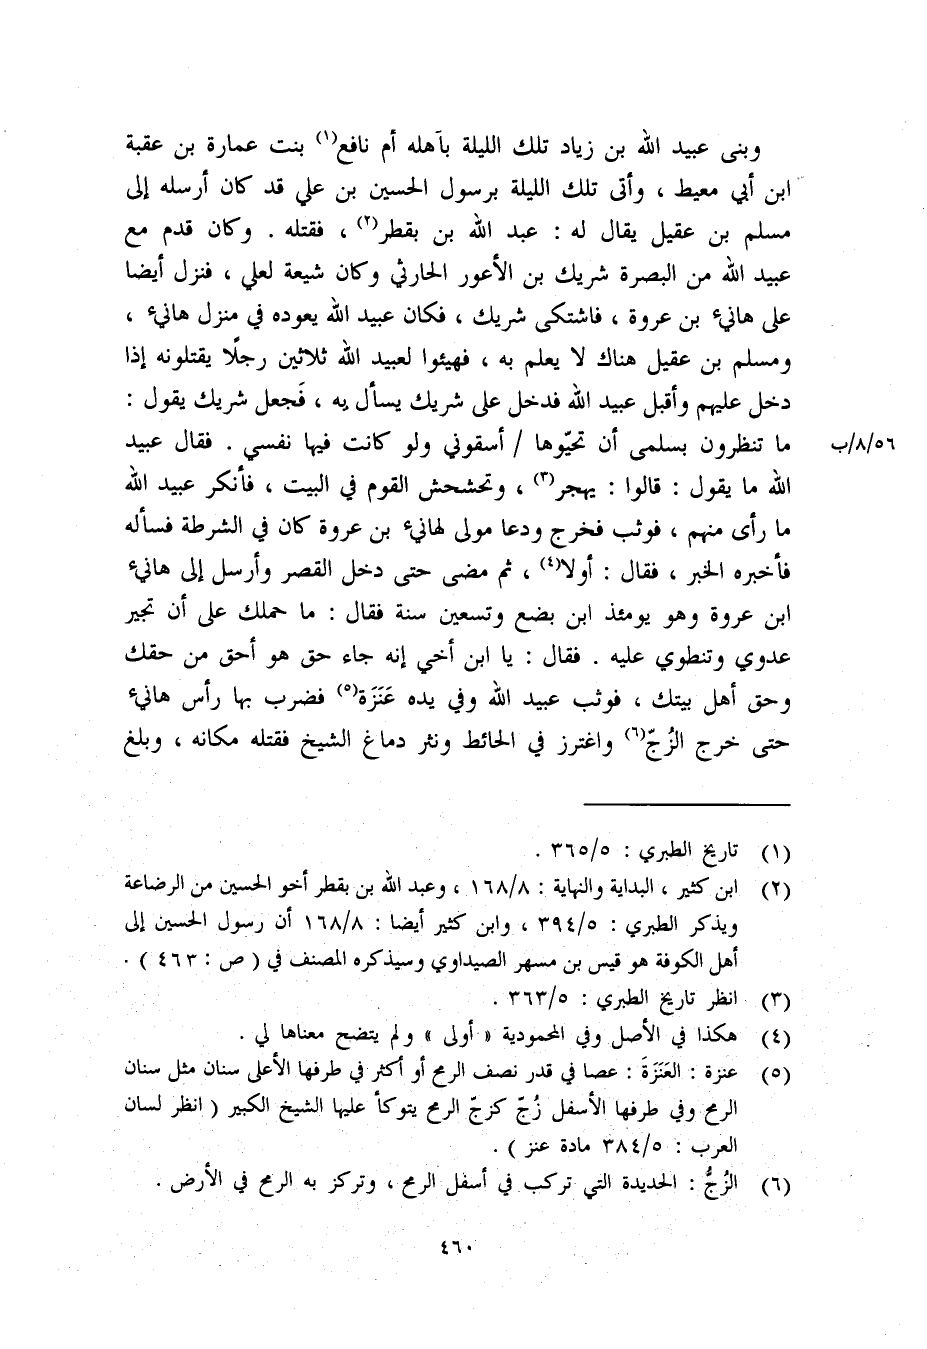 وبنى عبيد الله بن زياد تلك الليلة بآهله أم نافع(١) بنت عمارة بن عقبة
ابن أبي معيط ، وأتى تلك الليلة برسول الحسين بن علي قد كان أرسله إلى
مسلم بن عقيل يقال له : عبد الله بن بقطر(٢) ، فقتله . وكان قدم مع
عبيد الله من البصرة شريك بن الأعور الحارثي وكان شيعة لعلي ، فنزل أيضا
على هانيء بن عروة ، فاشتكى شريك ، فكان عبيد الله يعوده في منزل هانيء ،
ومسلم بن عقيل هناك لا يعلم به ، فهيئوا لعبيد الله ثلاثين رجلًا يقتلونه إذا
دخل عليهم وأقبل عبيد الله فدخل على شريك يسأل به ، فَجعل شريك يقول :
ما تنظرون بسلمى أن تحيّوها / أسقوني ولو كانت فيها نفسي . فقال عبيد
٨/٥٦/ب
الله ما يقول : قالوا : يهجر(٣) ، وتحشحش القوم في البيت ، فأنكر عبيد الله
ما رأى منهم ، فوثب فخرج ودعا مولى لهانيء بن عروة كان في الشرطة فسأله
فأخبره الخبر ، فقال : أولا(٤) ، ثم مضى حتى دخل القصر وأرسل إلى هانيء
ابن عروة وهو يومئذ ابن بضع وتسعين سنة فقال : ما حملك على أن تجير
عدوي وتنطوي عليه . فقال : يا ابن أخي إنه جاء حق هو أحق من حقك
وحق أهل بيتك ، فوثب عبيد الله وفي يده عَنَزَة(٥) فضرب بها رأس هانيء
حتى خرج الزُجّ(٦) واغترز في الحائط ونثر دماغ الشيخ فقتله مكانه ، وبلغ
(١) تاريخ الطبري : ٣٦٥/٥ .
(٢) ابن كثير ، البداية والنهاية : ١٦٨/٨ ، وعبد الله بن بقطر أخو الحسين من الرضاعة
ويذكر الطبري : ٣٩٤/٥ ، وابن كثير أيضا : ١٦٨/٨ أن رسول الحسين إلى
أهل الكوفة هو قيس بن مسهر الصيداوي وسيذكره المصنف في ( ص : ٤٦٣ ) .
(٣) انظر تاريخ الطبري : ٣٦٣/٥ .
(٤) هكذا في الأصل وفي المحمودية « أولى » ولم يتضح معناها لي .
(٥) عنزة : العَنَزَة : عصا في قدر نصف الرمح أو أكثر في طرفها الأعلى سنان مثل سنان
الرمح وفي طرفها الأسفل زُجّ كزجّ الرمح يتوكأ عليها الشيخ الكبير ( انظر لسان
العرب : ٣٨٤/٥ مادة عنز ) .
(٦) الزُجُّ : الحديدة التي تركب في أسفل الرمح ، وتركز به الرمح في الأرض .
٤٦٠